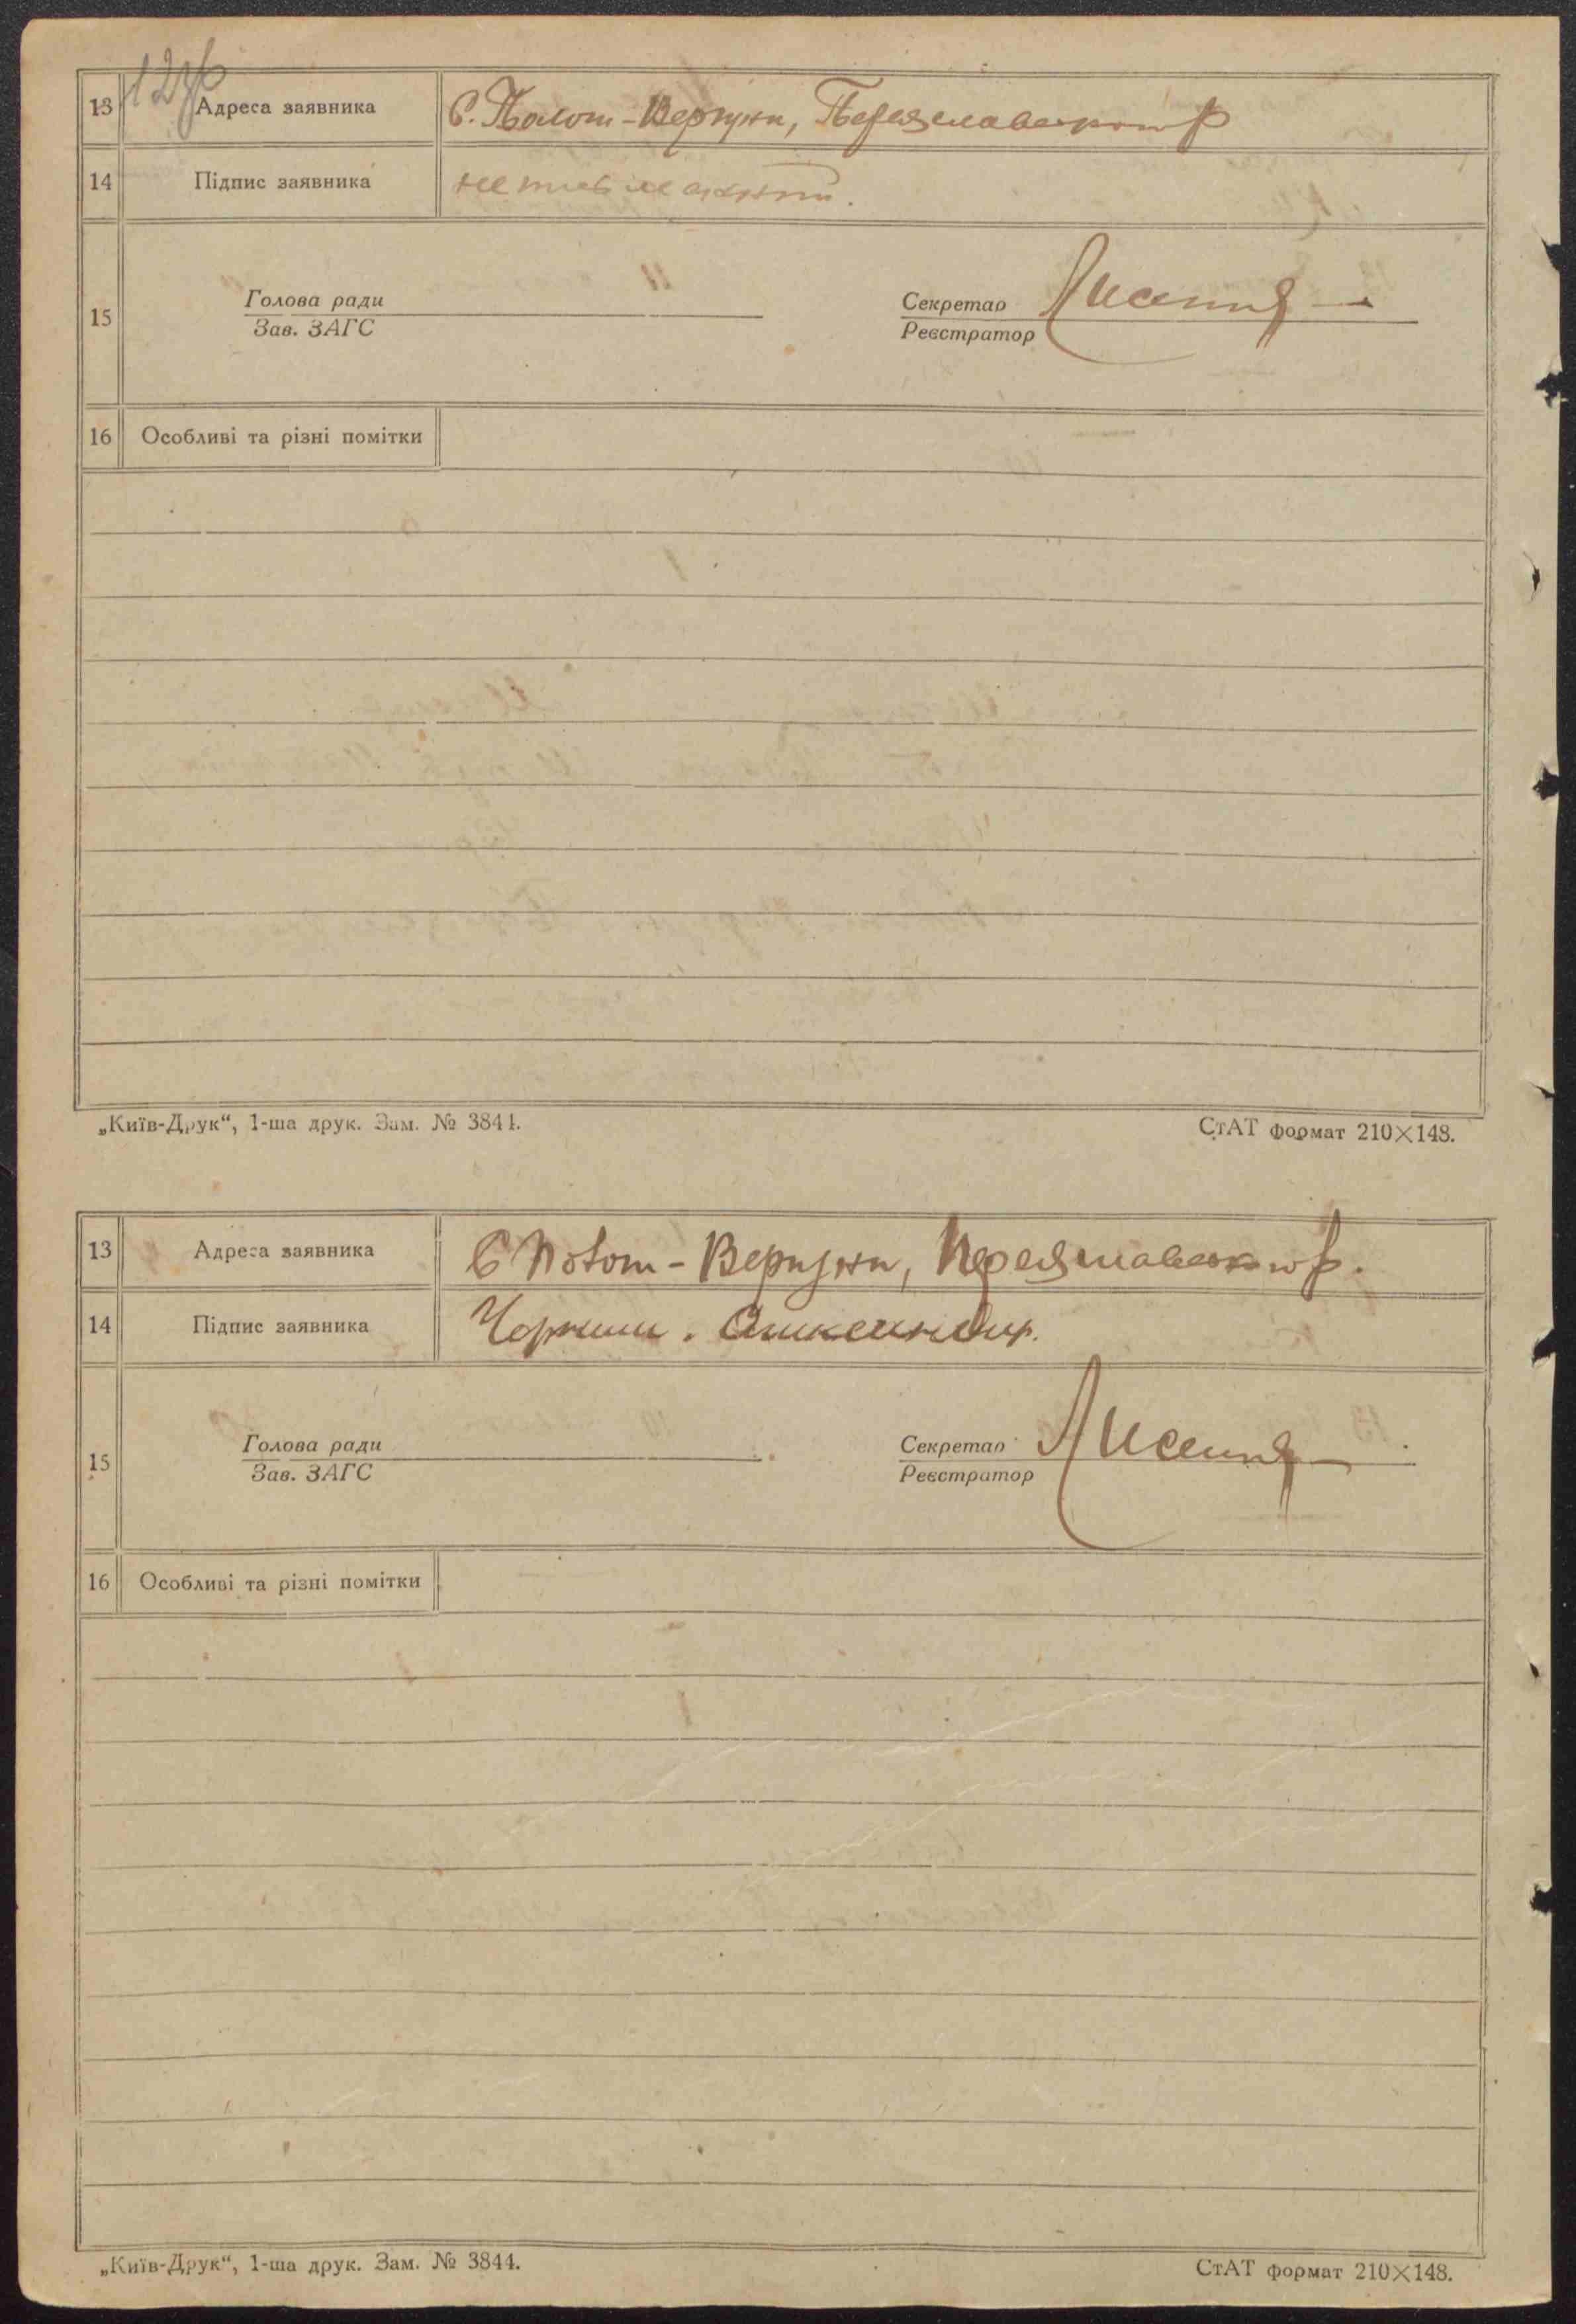 13 Адреса заявника С. Полот-Вергуни, Переяславського р
14 Підпис заявника неписьменний.
15 Голова ради
Зав. ЗАГС
Секретар
Реєстратор
16 Особливі та різні помітки
„Київ-Друк“, 1-ша друк. Зам. № 3844.
СтАТ формат 210×148.
13 Адреса заявника С Полот-Вергуни, Переяславського р.
14 Підпис заявника Черниш. Олександр.
15 Голова ради
Зав. ЗАГС
Секретар
Реєстратор
16 Особливі та різні помітки
„Київ-Друк“, 1-ша друк. Зам. № 3844.
СтАТ формат 210×148.